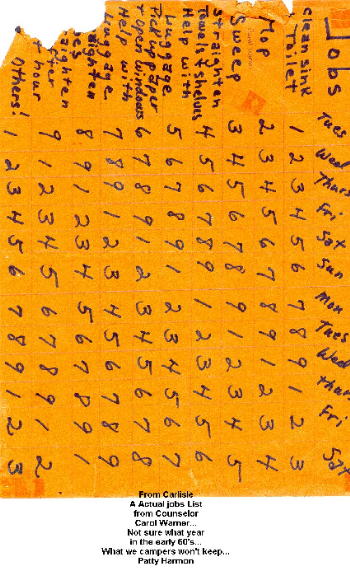 Jobs
Tues Wed Thurs Fri Sat Sun Mon Tues Wed Thurs Fri Sat
Clean Sink
Toilet 1 2 3 4 5 6 7 8 9 1 2 3
Mop 2 3 4 5 6 7 8 9 1 2 3 4
Sweep 3 4 5 6 7 8 9 1 2 3 4 5
Straighten
Towels + shelves 4 5 6 7 8 9 1 2 3 4 5 6
Help with
Luggage 5 6 7 8 9 1 2 3 4 5 6 7
Pick up paper
+ Open windows 6 7 8 9 1 2 3 4 5 6 7 8
Help with
Luggage 7 8 9 1 2 3 4 5 6 7 8 9
aighten
es 8 9 1 2 3 4 5 6 7 8 9 1
aighten
fter
t hour 9 1 2 3 4 5 6 7 8 9 1 2
Others! 1 2 3 4 5 6 7 8 9 1 2 3
From Carlisle
A Actual jobs List
from Counselor
Carol Warner...
Not sure what year
in the early 60's...
What we campers won't keep...
Patty Harmon